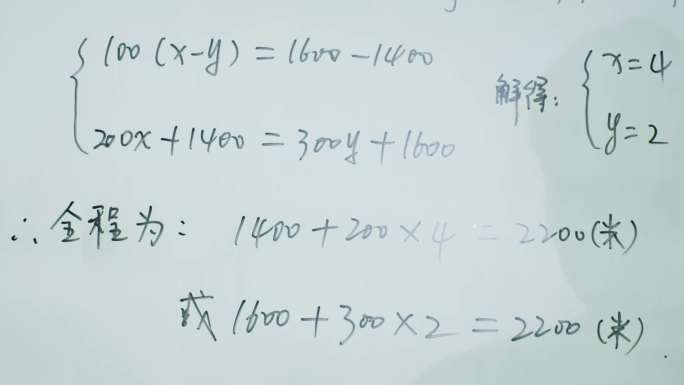 { 100(x-y)=1600-1400
200x+1400=300y+1600
解得: { x=4
y=2
∴全程为: 1400+200×4=2200(米)
或 1600+300×2=2200(米).